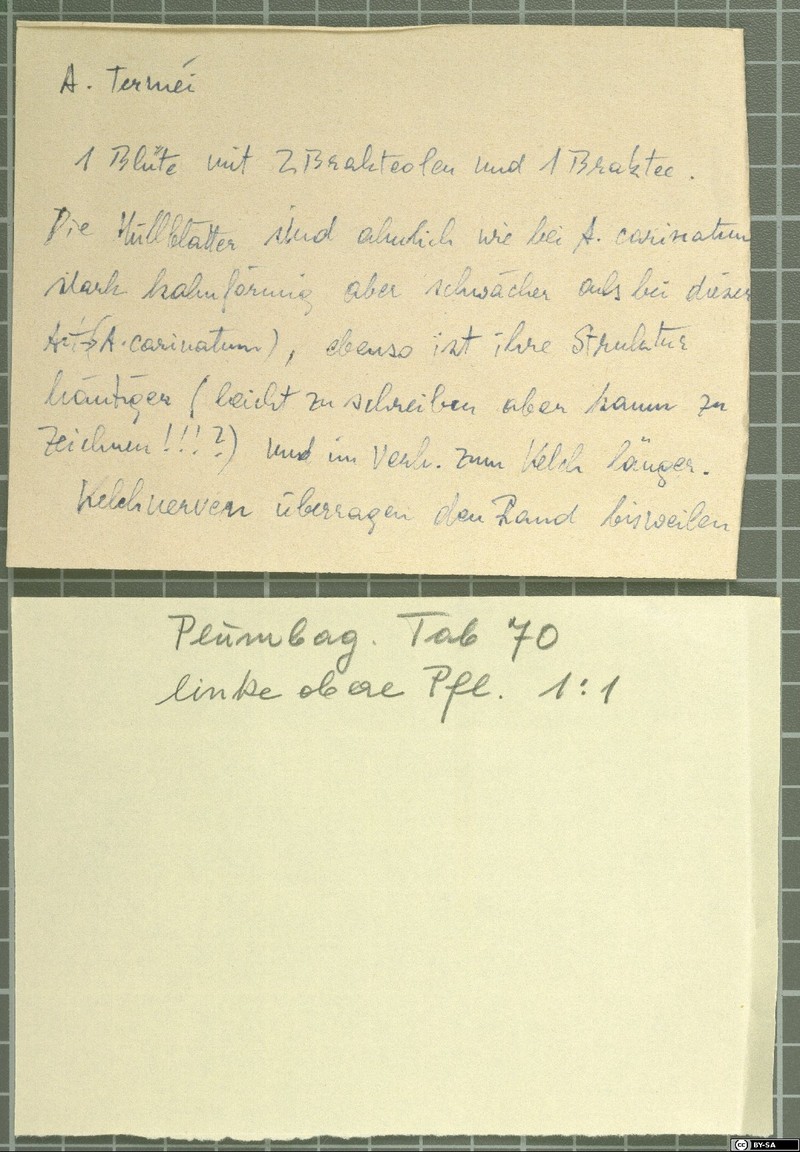 A. Terméi
1 Blüte mit 2 Brakteolen und 1 Braktee.
Die Hüllblätter sind ähnlich wie bei A. carinatum
stark kahnförmig aber schwächer als bei dieser
Art (A. carinatum), ebenso ist ihre Struktur
häutiger (leicht zu schreiben aber kaum zu
zeichnen!!!?) und im Verh. zum Kelch länger.
Kelchnerven überragen den Rand bisweilen
Plumbag. Tab 70
linke obere Pfl. 1:1
CC BY-SA